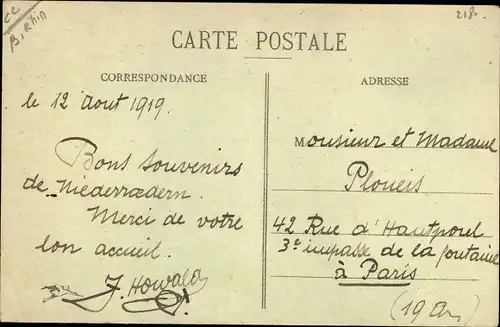 CC
B. Rhin
218
CARTE POSTALE
CORRESPONDANCE
ADRESSE
le 12 Aout 1919.
Bons souvenirs
de Niederrædern.
Merci de votre
bon accueil.
J. Howald
Monsieur et Madame
Ploueis
42 Rue d'Hautpoul
3e impasse de la fontaine
à Paris
(19 Ar.)